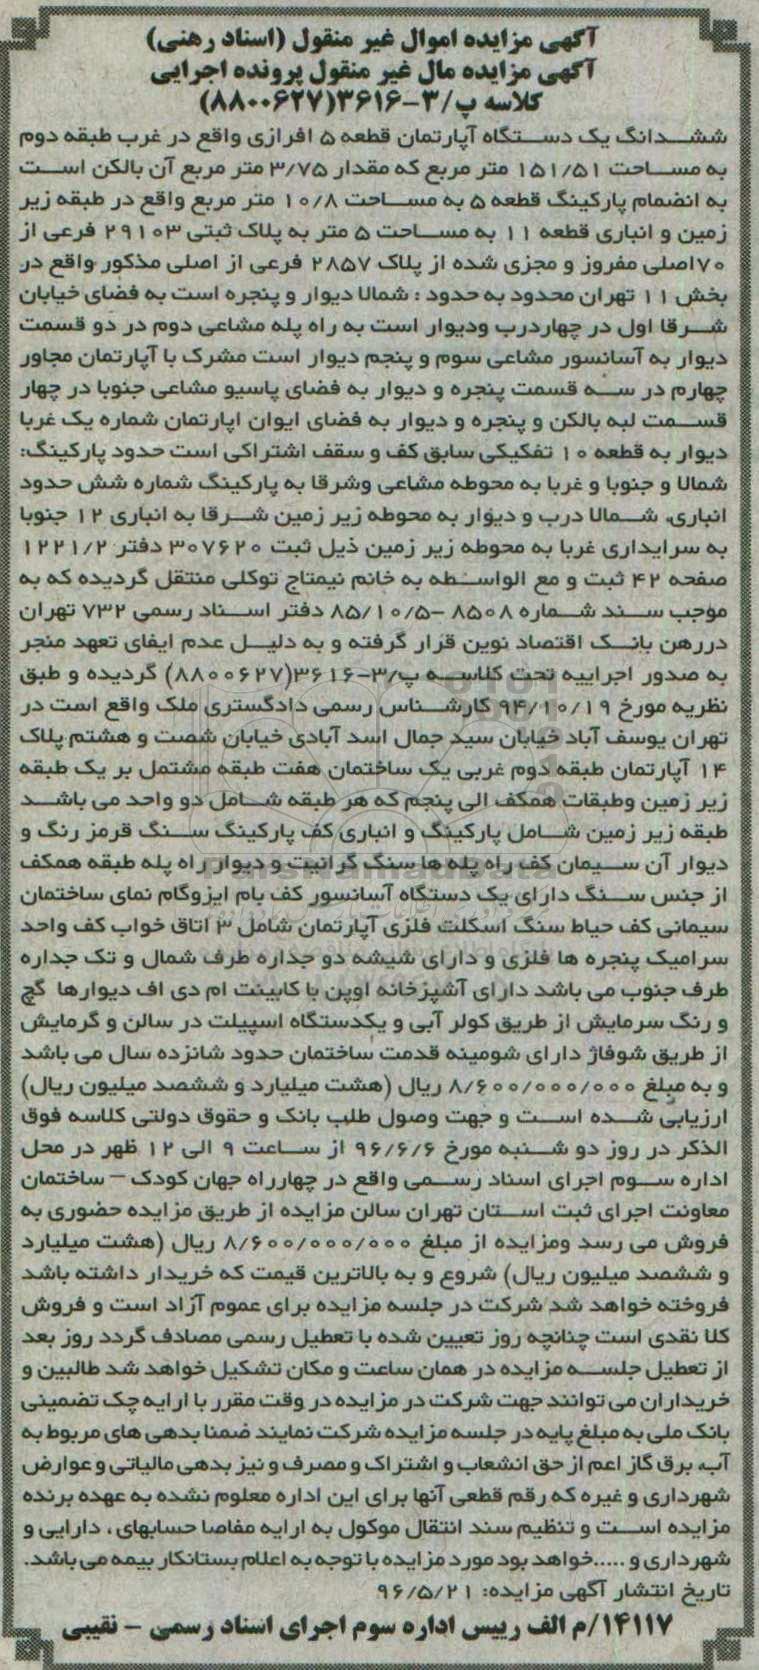 آگهی مزایده اموال غیر منقول (اسناد رهنی)
آگهی مزایده مال غیر منقول پرونده اجرایی
کلاسه پ/۳-۳۶۱۶(۸۸۰۰۶۲۷)
ششدانگ یک دستگاه آپارتمان قطعه ۵ افرازی واقع در غرب طبقه دوم
به مساحت ۱۵۱/۵۱ متر مربع که مقدار ۳/۷۵ متر مربع آن بالکن است
به انضمام پارکینگ قطعه ۵ به مساحت ۱۰/۸ متر مربع واقع در طبقه زیر
زمین و انباری قطعه ۱۱ به مساحت ۵ متر به پلاک ثبتی ۲۹۱۰۳ فرعی از
۷۰اصلی مفروز و مجزی شده از پلاک ۲۸۵۷ فرعی از اصلی مذکور واقع در
بخش ۱۱ تهران محدود به حدود : شمالا دیوار و پنجره است به فضای خیابان
شرقا اول در چهاردرب ودیوار است به راه پله مشاعی دوم در دو قسمت
دیوار به آسانسور مشاعی سوم و پنجم دیوار است مشرک با آپارتمان مجاور
چهارم در سه قسمت پنجره و دیوار به فضای پاسیو مشاعی جنوبا در چهار
قسمت لبه بالکن و پنجره و دیوار به فضای ایوان اپارتمان شماره یک غربا
دیوار به قطعه ۱۰ تفکیکی سابق کف و سقف اشتراکی است حدود پارکینگ:
شمالا و جنوبا و غربا به محوطه مشاعی وشرقا به پارکینگ شماره شش حدود
انباری، شمالا درب و دیوار به محوطه زیر زمین شرقا به انباری ۱۲ جنوبا
به سرایداری غربا به محوطه زیر زمین ذیل ثبت ۳۰۷۶۲۰ دفتر ۱۲۲۱/۲
صفحه ۴۲ ثبت و مع الواسطه به خانم نیمتاج توکلی منتقل گردیده که به
موجب سند شماره ۸۵۰۸ -۸۵/۱۰/۵ دفتر اسناد رسمی ۷۳۲ تهران
دررهن بانک اقتصاد نوین قرار گرفته و به دلیل عدم ایفای تعهد منجر
به صدور اجراییه تحت کلاسه پ/۳-۳۶۱۶(۸۸۰۰۶۲۷) گردیده و طبق
نظریه مورخ ۹۴/۱۰/۱۹ کارشناس رسمی دادگستری ملک واقع است در
تهران یوسف آباد خیابان سید جمال اسد آبادی خیابان شصت و هشتم پلاک
۱۴ آپارتمان طبقه دوم غربی یک ساختمان هفت طبقه مشتمل بر یک طبقه
زیر زمین وطبقات همکف الی پنجم که هر طبقه شامل دو واحد می باشد
طبقه زیر زمین شامل پارکینگ و انباری کف پارکینگ سنگ قرمز رنگ و
دیوار آن سیمان کف راه پله ها سنگ گرانیت و دیوار راه پله طبقه همکف
از جنس سنگ دارای یک دستگاه آسانسور کف بام ایزوگام نمای ساختمان
سیمانی کف حیاط سنگ اسکلت فلزی آپارتمان شامل ۳ اتاق خواب کف واحد
سرامیک پنجره ها فلزی و دارای شیشه دو جداره طرف شمال و تک جداره
طرف جنوب می باشد دارای آشپزخانه اوپن با کابینت ام دی اف دیوارها گچ
و رنگ سرمایش از طریق کولر آبی و یکدستگاه اسپیلت در سالن و گرمایش
از طریق شوفاژ دارای شومینه قدمت ساختمان حدود شانزده سال می باشد
و به مبلغ ۸/۶۰۰/۰۰۰/۰۰۰ ریال (هشت میلیارد و ششصد میلیون ریال)
ارزیابی شده است و جهت وصول طلب بانک و حقوق دولتی کلاسه فوق
الذکر در روز دو شنبه مورخ ۹۶/۶/۶ از ساعت ۹ الی ۱۲ ظهر در محل
اداره سوم اجرای اسناد رسمی واقع در چهارراه جهان کودک – ساختمان
معاونت اجرای ثبت استان تهران سالن مزایده از طریق مزایده حضوری به
فروش می رسد ومزایده از مبلغ ۸/۶۰۰/۰۰۰/۰۰۰ ریال (هشت میلیارد
و ششصد میلیون ریال) شروع و به بالاترین قیمت که خریدار داشته باشد
فروخته خواهد شد شرکت در جلسه مزایده برای عموم آزاد است و فروش
کلا نقدی است چنانچه روز تعیین شده با تعطیل رسمی مصادف گردد روز بعد
از تعطیل جلسه مزایده در همان ساعت و مکان تشکیل خواهد شد طالبین و
خریداران می توانند جهت شرکت در مزایده در وقت مقرر با ارایه چک تضمینی
بانک ملی به مبلغ پایه در جلسه مزایده شرکت نمایند ضمنا بدهی های مربوط به
آب، برق گاز اعم از حق انشعاب و اشتراک و مصرف و نیز بدهی مالیاتی و عوارض
شهرداری و غیره که رقم قطعی آنها برای این اداره معلوم نشده به عهده برنده
مزایده است و تنظیم سند انتقال موکول به ارایه مفاصا حسابهای ، دارایی و
شهرداری و .....خواهد بود مورد مزایده با توجه به اعلام بستانکار بیمه می باشد.
تاریخ انتشار آگهی مزایده: ۹۶/۵/۲۱
۱۴۱۱۷/م الف رییس اداره سوم اجرای اسناد رسمی – نقیبی